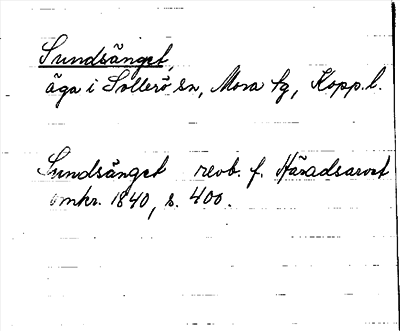 Sundsänget,
äga i Sollerö sn, Mora tg, Kopp. l.
Sundsänget revb. f. Häradsarvet
omkr. 1840, s. 400.